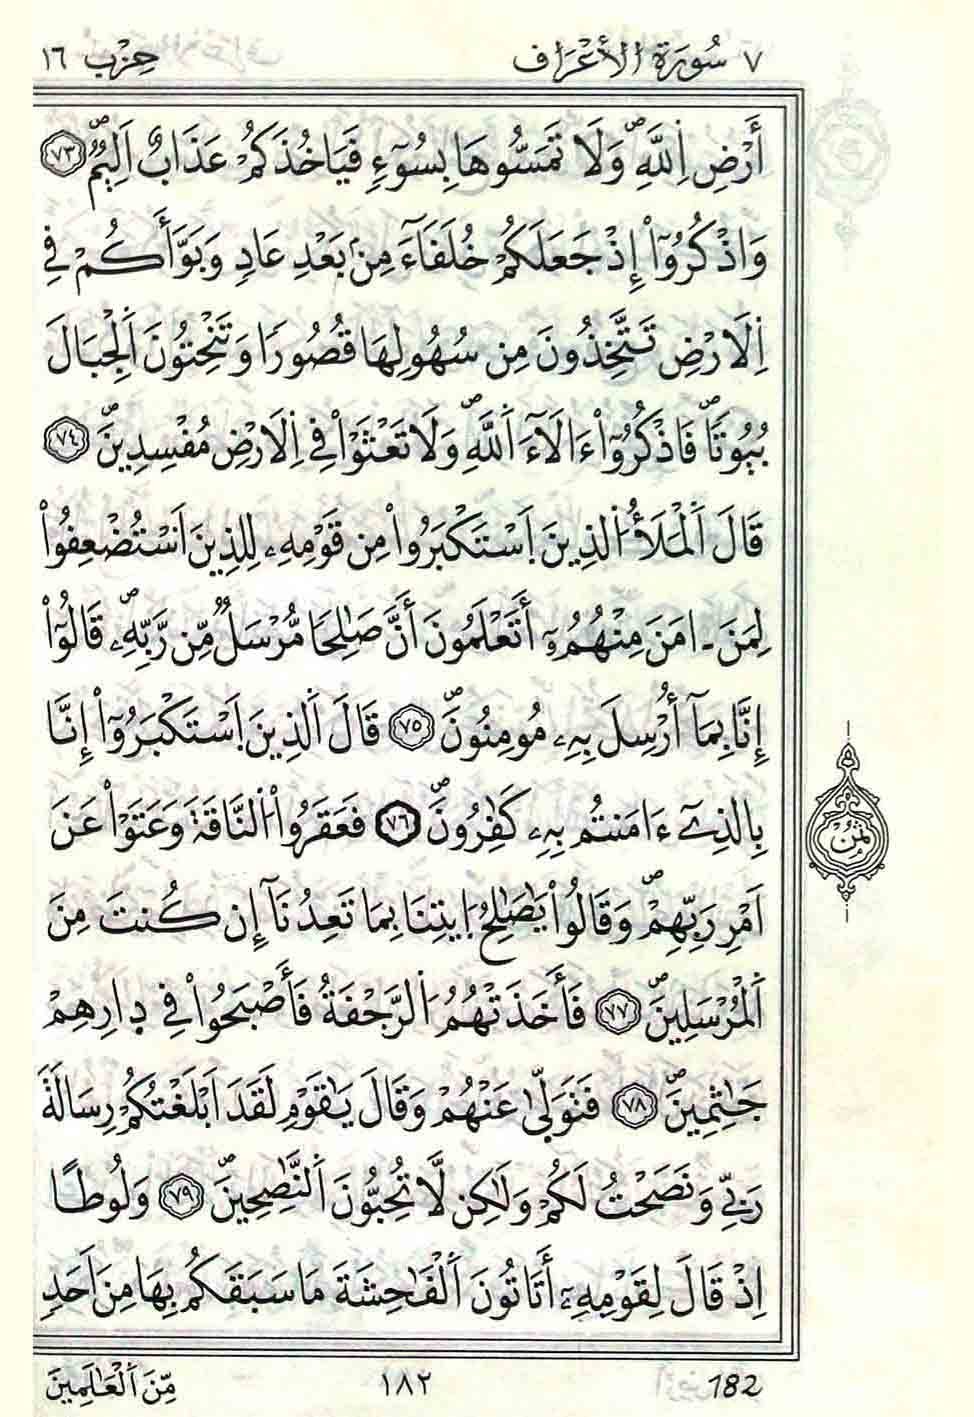 ٧ سُورَةُ الأَعْرَافِ حِزْب ١٦
أَرْضِ اِ۬للَّهِۖ وَلَا تَمَسُّوهَا بِسُوٓءٖ فَيَاخُذَكُمْ عَذَابٌ اَلِيمٞۖ ٧٣
وَاذْكُرُوٓاْ إِذْ جَعَلَكُمْ خُلَفَآءَ مِنۢ بَعْدِ عَادٖ وَبَوَّأَكُمْ فِے
اِ۬لَارْضِ تَتَّخِذُونَ مِن سُهُولِهَا قُصُوراٗ وَتَنْحِتُونَ اَ۬لْجِبَالَ
بُيُوتاٗۖ فَاذْكُرُوٓاْ ءَالَآءَ اَ۬للَّهِۖ وَلَا تَعْثَوْاْ فِے اِ۬لَارْضِ مُفْسِدِينَۖ ٧٤
قَالَ اَ۬لْمَلَأُ اُ۬لذِينَ اَ۪سْتَكْبَرُواْ مِن قَوْمِهِۦ لِلذِينَ اَ۟سْتُضْعِفُواْ
لِمَنَ ـ امَنَ مِنْهُمُۥٓ أَتَعْلَمُونَ أَنَّ صَٰلِحاٗ مُّرْسَلٞ مِّن رَّبِّهِۦۖ قَالُوٓاْ
إِنَّا بِمَآ أُرْسِلَ بِهِۦ مُومِنُونَۖ ٧٥ قَالَ اَ۬لذِينَ اَ۪سْتَكْبَرُوٓاْ إِنَّا
بِالذِےٓ ءَامَنتُم بِهِۦ كَٰفِرُونَۖ ٧٦ فَعَقَرُواْ اُ۬لنَّاقَةَ وَعَتَوْاْ عَنَ
اَمْرِ رَبِّهِمْۖ وَقَالُواْ يَٰصَٰلِحُ اُ۪يتِنَا بِمَا تَعِدُنَآ إِن كُنتَ مِنَ
اَ۬لْمُرْسَلِينَۖ ٧٧ فَأَخَذَتْهُمُ اُ۬لرَّجْفَةُ فَأَصْبَحُواْ فِے دِارِهِمْ
جَٰثِمِينَۖ ٧٨ فَتَوَلّ۪يٰ عَنْهُمْ وَقَالَ يَٰقَوْمِ لَقَدَ اَبْلَغْتُكُمْ رِسَالَةَ
رَبِّے وَنَصَحْتُ لَكُمْ وَلَٰكِن لَّا تُحِبُّونَ اَ۬لنَّٰصِحِينَۖ ٧٩ وَلُوطاً
اِذْ قَالَ لِقَوْمِهِۦٓ أَتَاتُونَ اَ۬لْفَٰحِشَةَ مَا سَبَقَكُم بِهَا مِنَ اَحَدٖ
ثُمُن
مِّنَ اَ۬لْعَٰلَمِينَ ١٨٢ 182